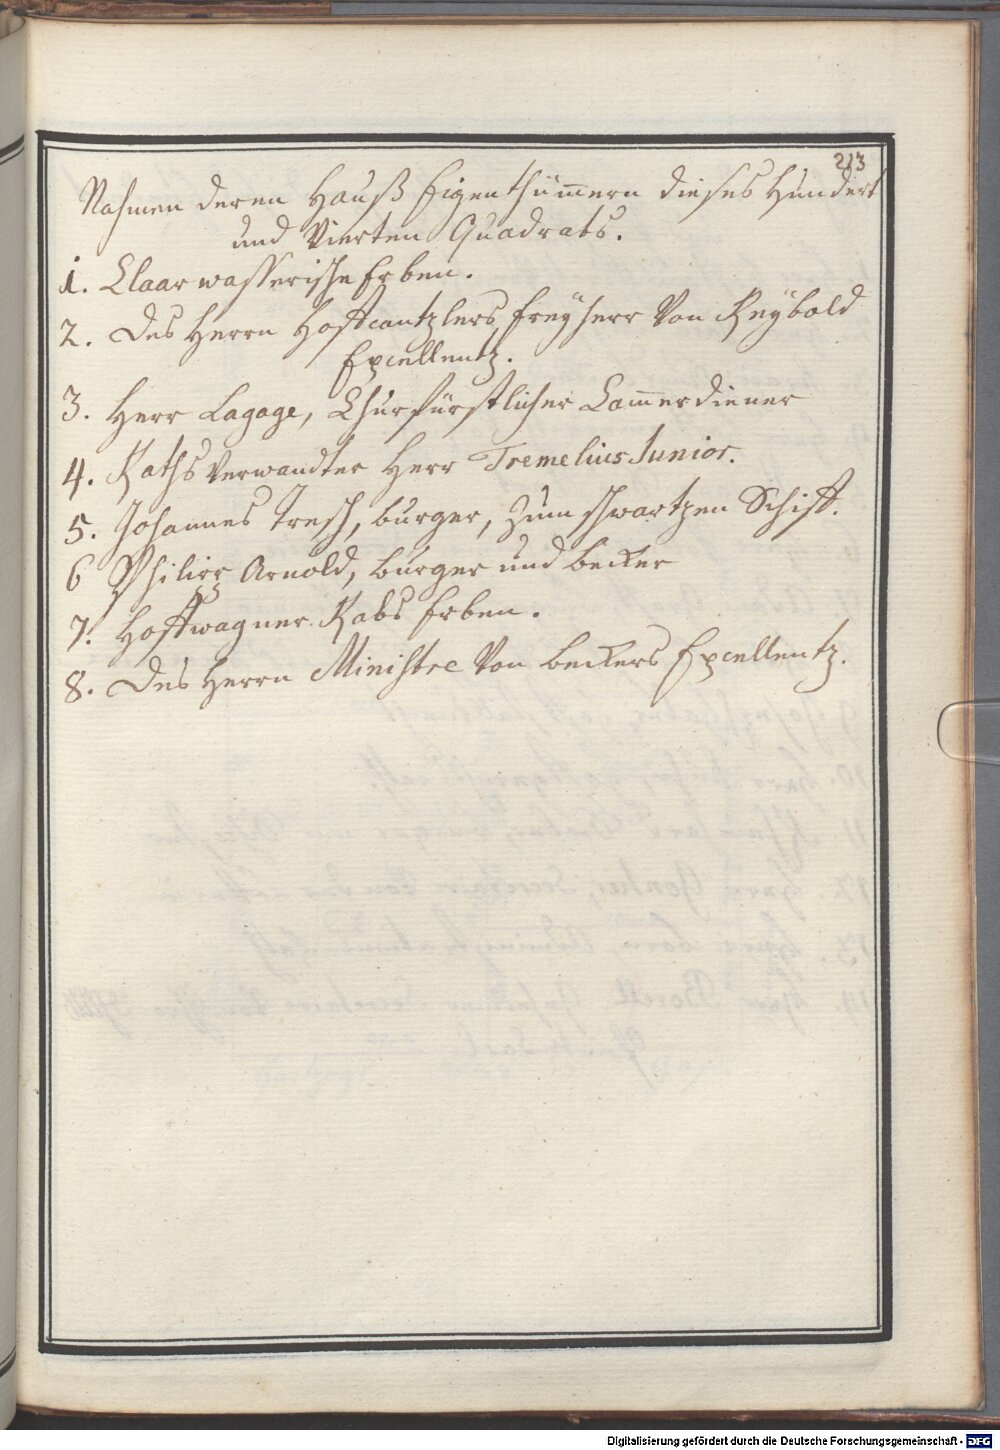 213
Nahmen deren Hauß Eigenthümern dieses Hundert
und Vierten Quadrats.
1. Claarwasserische Erben.
2. Des Herrn Hoffcantzlers, Freyherr Von Reybold
Excellentz.
3. Herr Lagage, Churfürstlicher Cammerdiener
4. Rathsverwandter Herr Tremelius Junior.
5. Johannes Tresch, burger, zum schwartzen Schiff.
6 Philipp Arnold, burger und becker
7. Hoffwagner Rabs Erben.
8. Des Herrn Ministre Von beckers Excellentz.
Digitalisierung gefördert durch die Deutsche Forschungsgemeinschaft - DFG